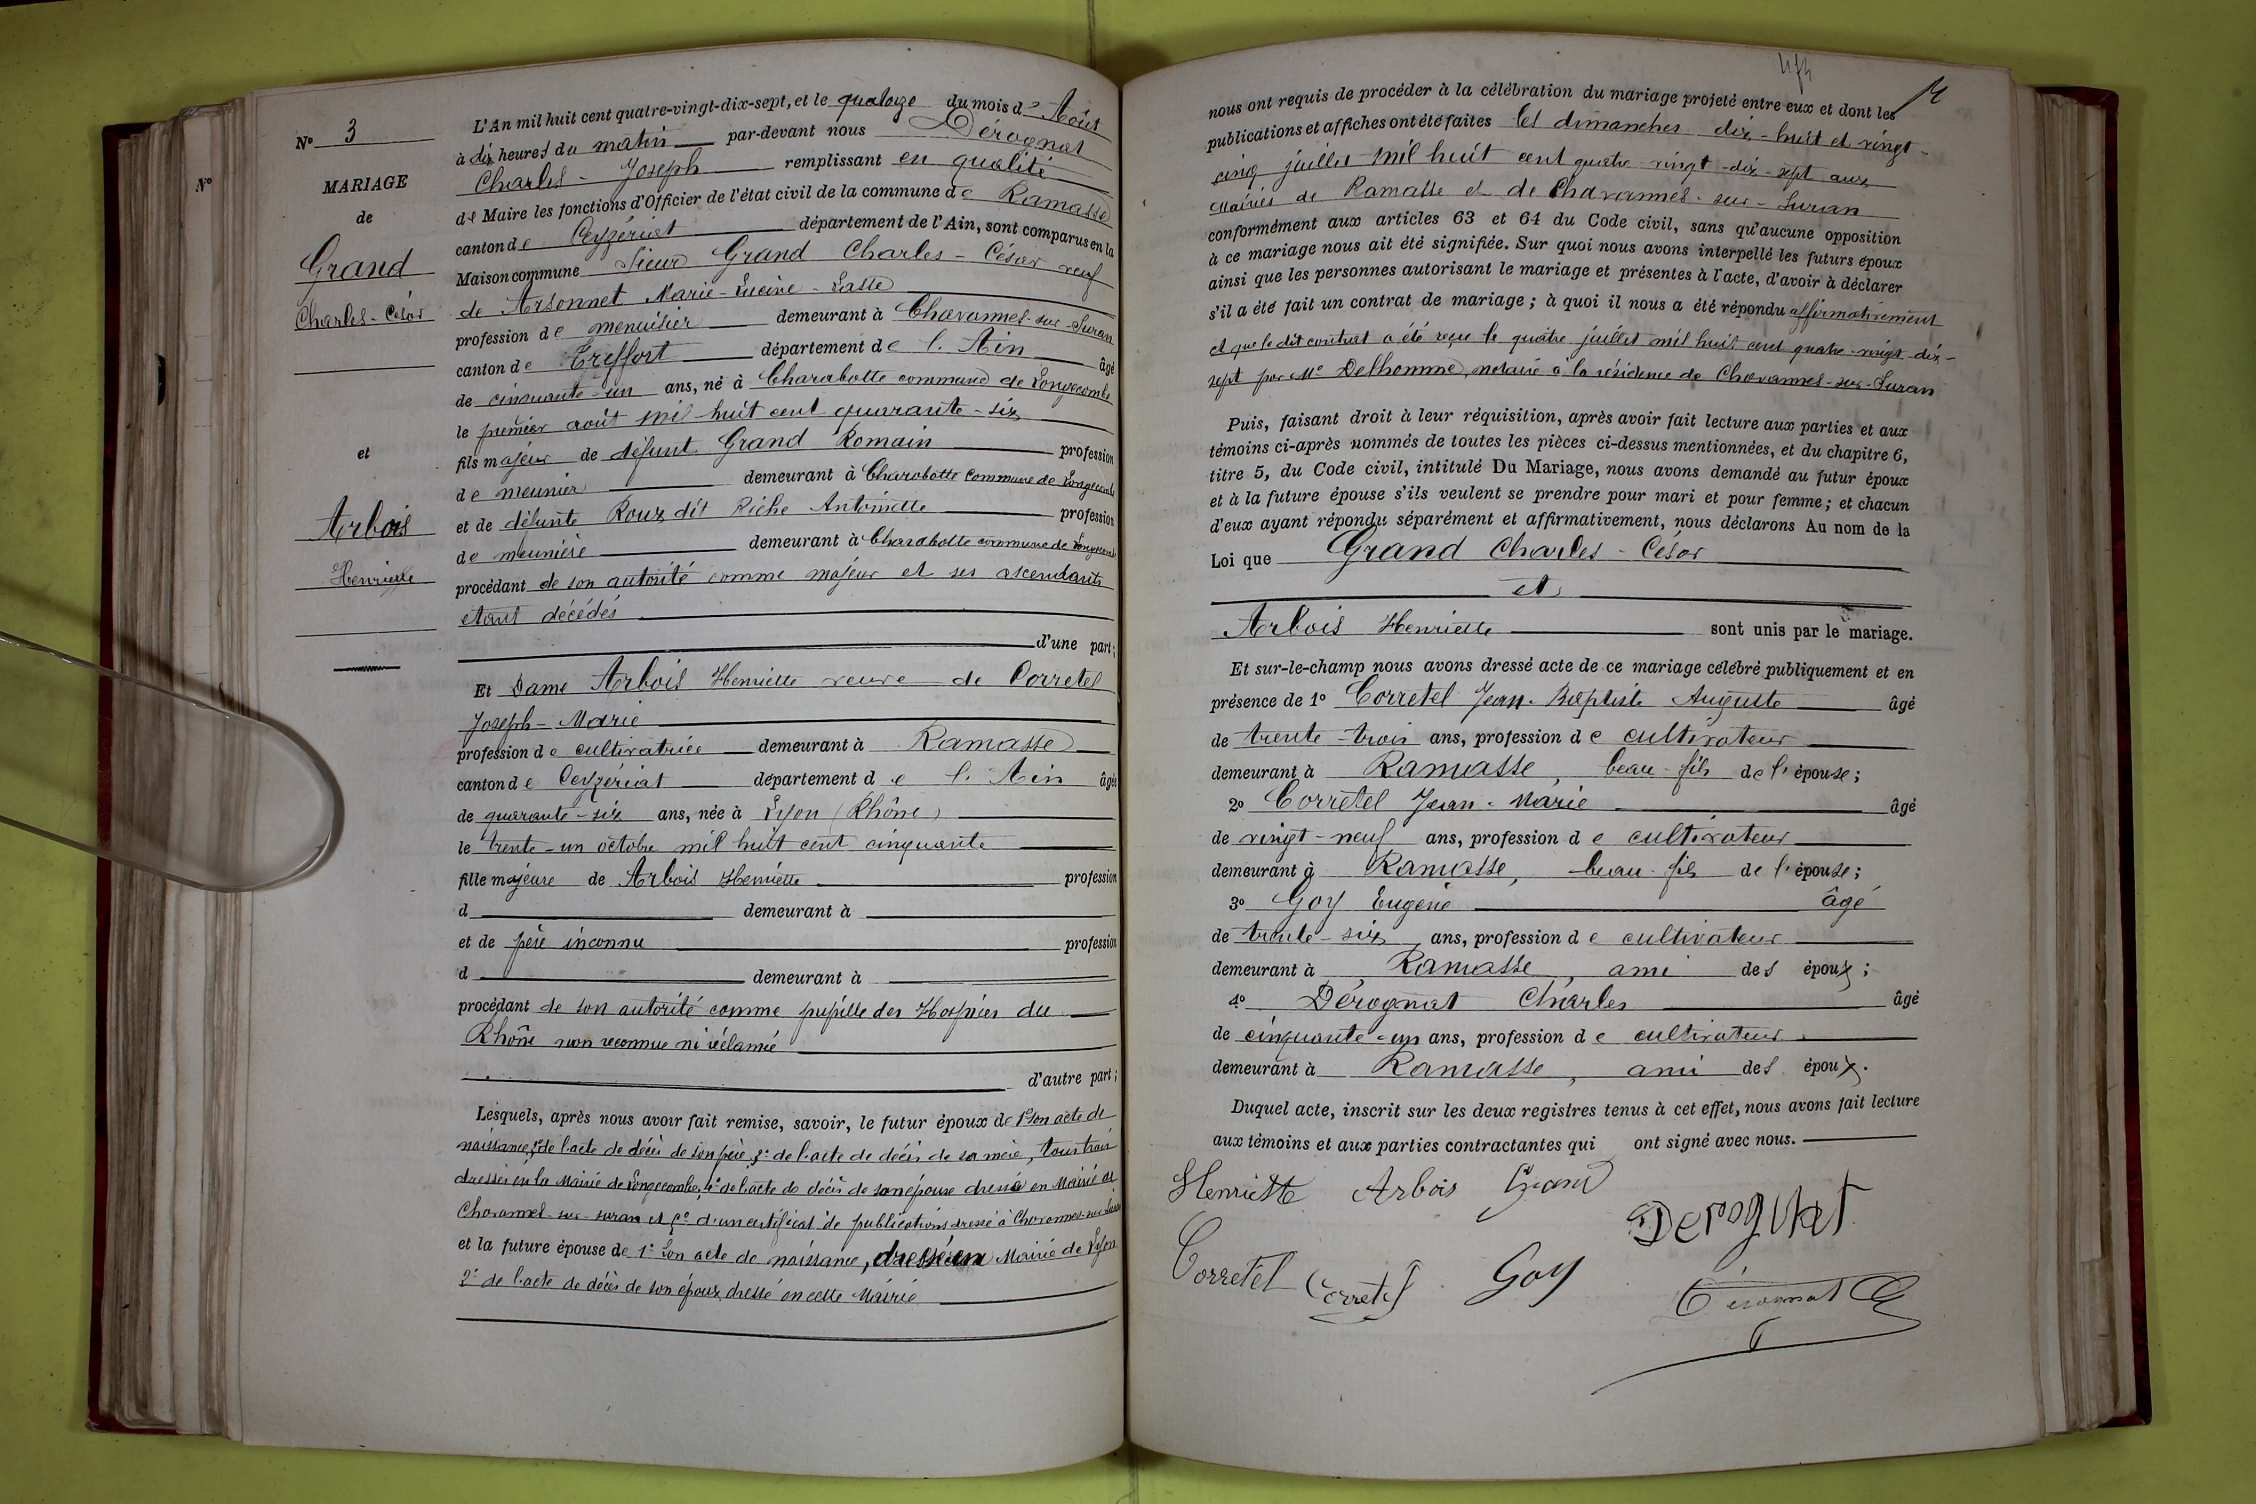 Nº
Nº 3
MARIAGE
de
Grand
Charles-César
et
Arbois
Henriette
L'An mil huit cent quatre-vingt-dix-sept, et le quatorze du mois d'Août
à dix heures du matin par-devant nous Dérognat
Charles-Joseph remplissant en qualité
de Maire les fonctions d'Officier de l'état civil de la commune de Ramasse
canton de Ceyzériat département de l'Ain, sont comparus en la
Maison commune Sieur Grand Charles-César veuf
de Arsonnet Marie-Lucine-Laste
profession de menuisier demeurant à Chavannes-sur-Suran
canton de Treffort département de l'Ain âgé
de cinquante-un ans, né à Charabotte commune de Longecombe
le premier août mil huit cent quarante-six
fils majeur de défunt Grand Romain profession
de meunier demeurant à Charabotte commune de Longecombe
et de défunte Roux dit Riche Antoinette profession
de meunière demeurant à Charabotte commune de Longecombe
procédant de son autorité comme majeur et ses ascendants
étant décédés
d'une part;
Et Dame Arbois Henriette veuve de Corretel
Joseph-Marie
profession de cultivatrice demeurant à Ramasse
canton de Ceyzériat département de l'Ain âgée
de quarante-six ans, née à Lyon (Rhône)
le trente-un octobre mil huit cent cinquante
fille majeure de Arbois Henriette profession
d demeurant à
et de père inconnu profession
d demeurant à
procédant de son autorité comme pupille des Hospices du
Rhône non reconnue ni réclamée
d'autre part;
Lesquels, après nous avoir fait remise, savoir, le futur époux de 1º son acte de
naissance, 2º de l'acte de décès de son père, 3º de l'acte de décès de sa mère, tous trois
dressés en la Mairie de Longecombe, 4º de l'acte de décès de son épouse dressé en Mairie de
Chavannes-sur-Suran et 5º d'un certificat de publications dressé à Chavannes-sur-Suran
et la future épouse de 1º son acte de naissance, dressé en Mairie de Lyon
2º de l'acte de décès de son époux dressé en cette Mairie
nous ont requis de procéder à la célébration du mariage projeté entre eux et dont les
publications et affiches ont été faites les dimanches dix-huit et vingt-
cinq juillet mil huit cent quatre-vingt-dix-sept aux
Mairies de Ramasse et de Chavannes-sur-Suran
conformément aux articles 63 et 64 du Code civil, sans qu'aucune opposition
à ce mariage nous ait été signifiée. Sur quoi nous avons interpellé les futurs époux
ainsi que les personnes autorisant le mariage et présentes à l'acte, d'avoir à déclarer
s'il a été fait un contrat de mariage; à quoi il nous a été répondu affirmativement
et que le dit contrat a été reçu le quatre juillet mil huit cent quatre-vingt-dix-
sept par Me Delhomme, notaire à la résidence de Chavannes-sur-Suran
Puis, faisant droit à leur réquisition, après avoir fait lecture aux parties et aux
témoins ci-après nommés de toutes les pièces ci-dessus mentionnées, et du chapitre 6,
titre 5, du Code civil, intitulé Du Mariage, nous avons demandé au futur époux
et à la future épouse s'ils veulent se prendre pour mari et pour femme; et chacun
d'eux ayant répondu séparément et affirmativement, nous déclarons Au nom de la
Loi que Grand Charles-César
et
Arbois Henriette sont unis par le mariage.
Et sur-le-champ nous avons dressé acte de ce mariage célébré publiquement et en
présence de 1º Corretel Jean-Baptiste Auguste âgé
de trente-trois ans, profession de cultivateur
demeurant à Ramasse, beau-fils de l'épouse;
2º Corretel Jean-Marie âgé
de vingt-neuf ans, profession de cultivateur
demeurant à Ramasse, beau-fils de l'épouse;
3º Goy Eugène âgé
de trente-six ans, profession de cultivateur
demeurant à Ramasse, ami des époux;
4º Dérognat Charles âgé
de cinquante-un ans, profession de cultivateur
demeurant à Ramasse, ami des époux.
Duquel acte, inscrit sur les deux registres tenus à cet effet, nous avons fait lecture
aux témoins et aux parties contractantes qui ont signé avec nous.
Henriette Arbois Grand
Derognat
Corretel Corretel Goy
Dérognat